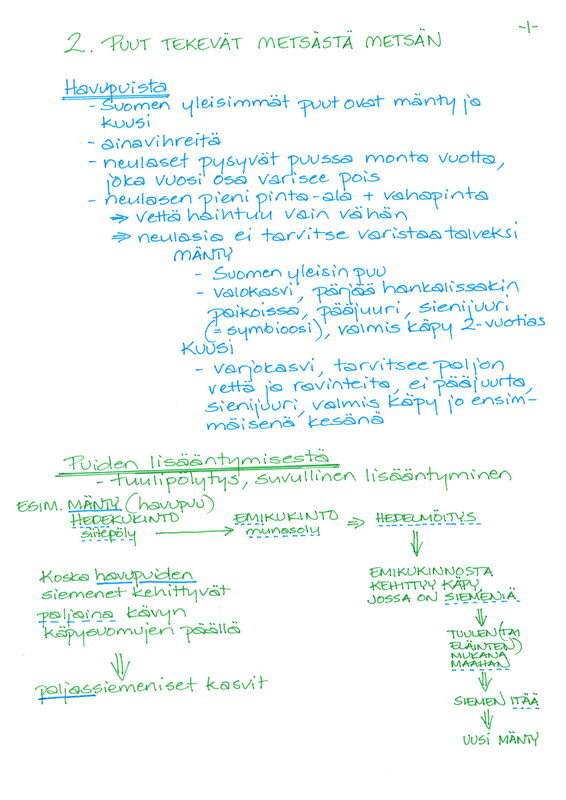 -1-
2. PUUT TEKEVÄT METSÄSTÄ METSÄN
Havupuista
- Suomen yleisimmät puut ovat mänty ja
kuusi
- ainavihreitä
- neulaset pysyvät puussa monta vuotta,
joka vuosi osa varisee pois
- neulasen pieni pinta-ala + vahapinta
⇒ vettä haihtuu vain vähän
⇒ neulasia ei tarvitse varistaa talveksi
MÄNTY
- Suomen yleisin puu
- valokasvi, pärjää hankalissakin
paikoissa, pääjuuri, sienijuuri
(= symbioosi), valmis käpy 2-vuotias
KUUSI
- varjokasvi, tarvitsee paljon
vettä ja ravinteita, ei pääjuurta,
sienijuuri, valmis käpy jo ensim-
mäisenä kesänä
Puiden lisääntymisestä
- tuulipölytys, suvullinen lisääntyminen
ESIM. MÄNTY (havupuu)
HEDEKUKINTO → EMIKUKINTO ⇒ HEDELMÖITYS
siitepöly munasolu
⇓
EMIKUKINNOSTA
KEHITTYY KÄPY,
JOSSA ON SIEMENIÄ
⇓
TUULEN (TAI
ELÄINTEN)
MUKANA
MAAHAN
⇓
SIEMEN ITÄÄ
⇓
UUSI MÄNTY
Koska havupuiden
siemenet kehittyvät
paljaina kävyn
käpysuomujen päällä
⇓
paljassiemeniset kasvit